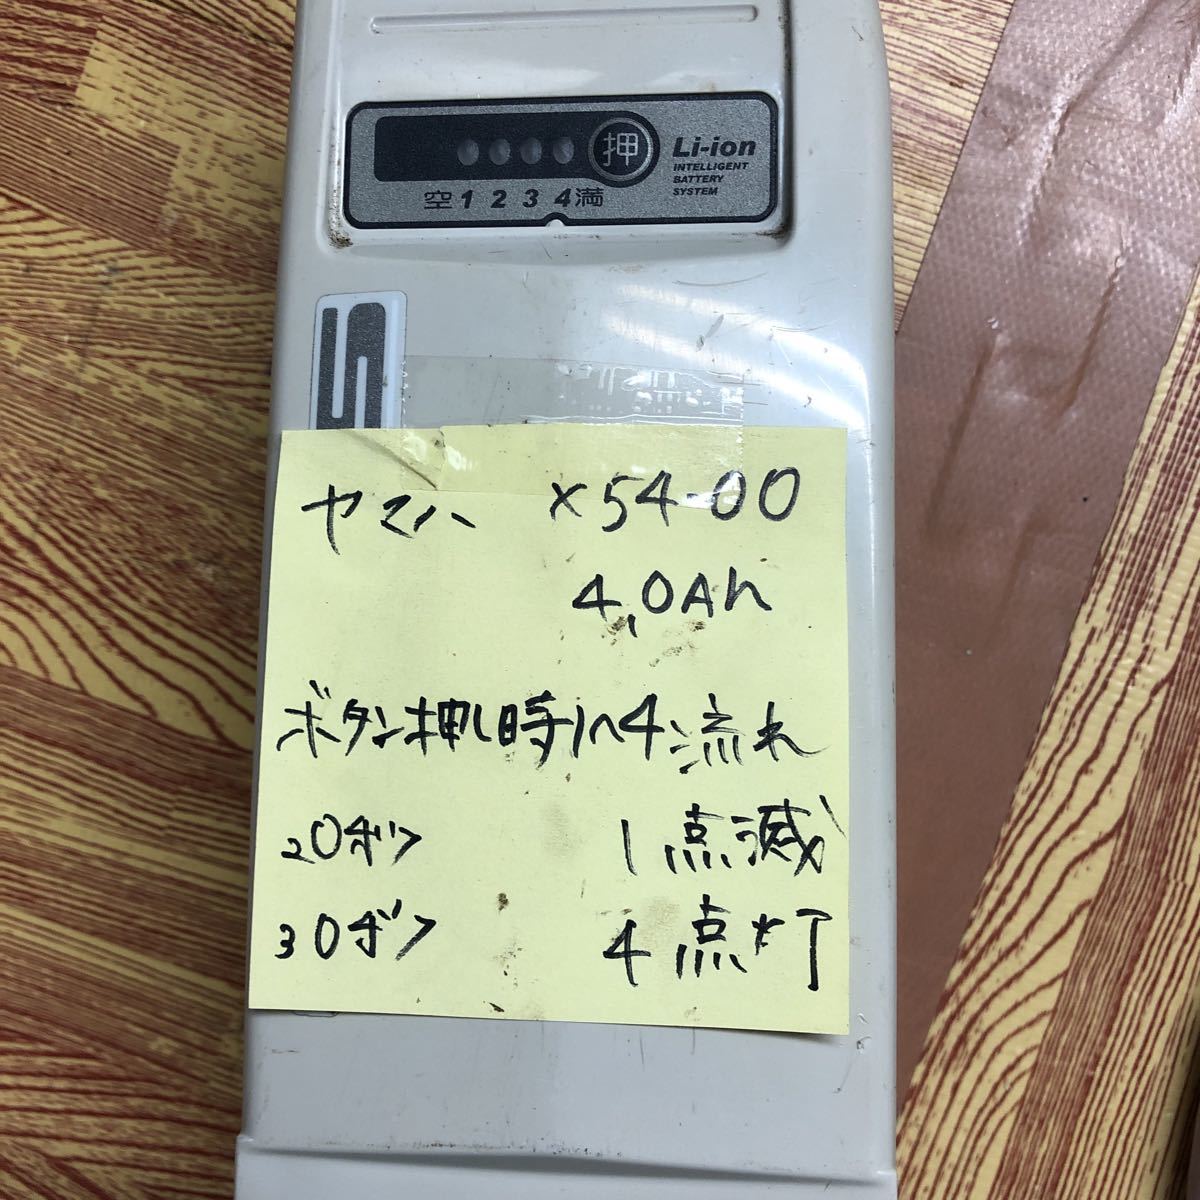 押
Li-ion
INTELLIGENT
BATTERY
SYSTEM
空 1 2 3 4 満
ヤマハ X54-00
4.0Ah
ボタン押し時 1~4 流れ
20ボツ 1 点滅
30ボツ 4 点灯